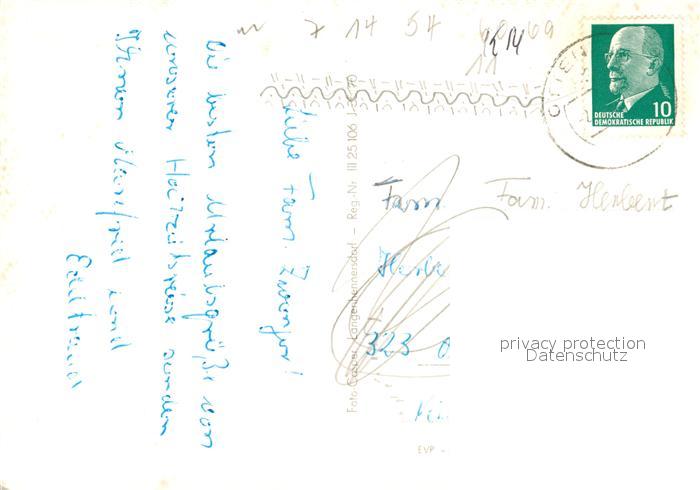 7 14 54
11
DEUTSCHE
DEMOKRATISCHE REPUBLIK
10
Liebe Fam.
Die besten Urlaubsgrüße von
unserer Hochzeitsreise senden
Ihnen Manfried und
Edeltraud
Foto Casper, Langenhennersdorf – Reg.-Nr. III 25 106
Fam.
323
EVP
Fam. Herbert
privacy protection
Datenschutz